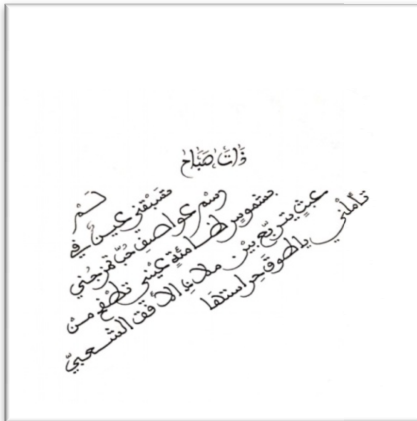 ذَاتَ صَبَاح
لَمْ
تسبقني عين في
رسْم عواصف حبّ تمزجُني
بشموسٍ ظامئةٍ عيْني تطفح منْ
عبثٍ يتربّع بيْن ملاءِ الأفق الشعبيّ
تأمّلْني يا طوق حراستها